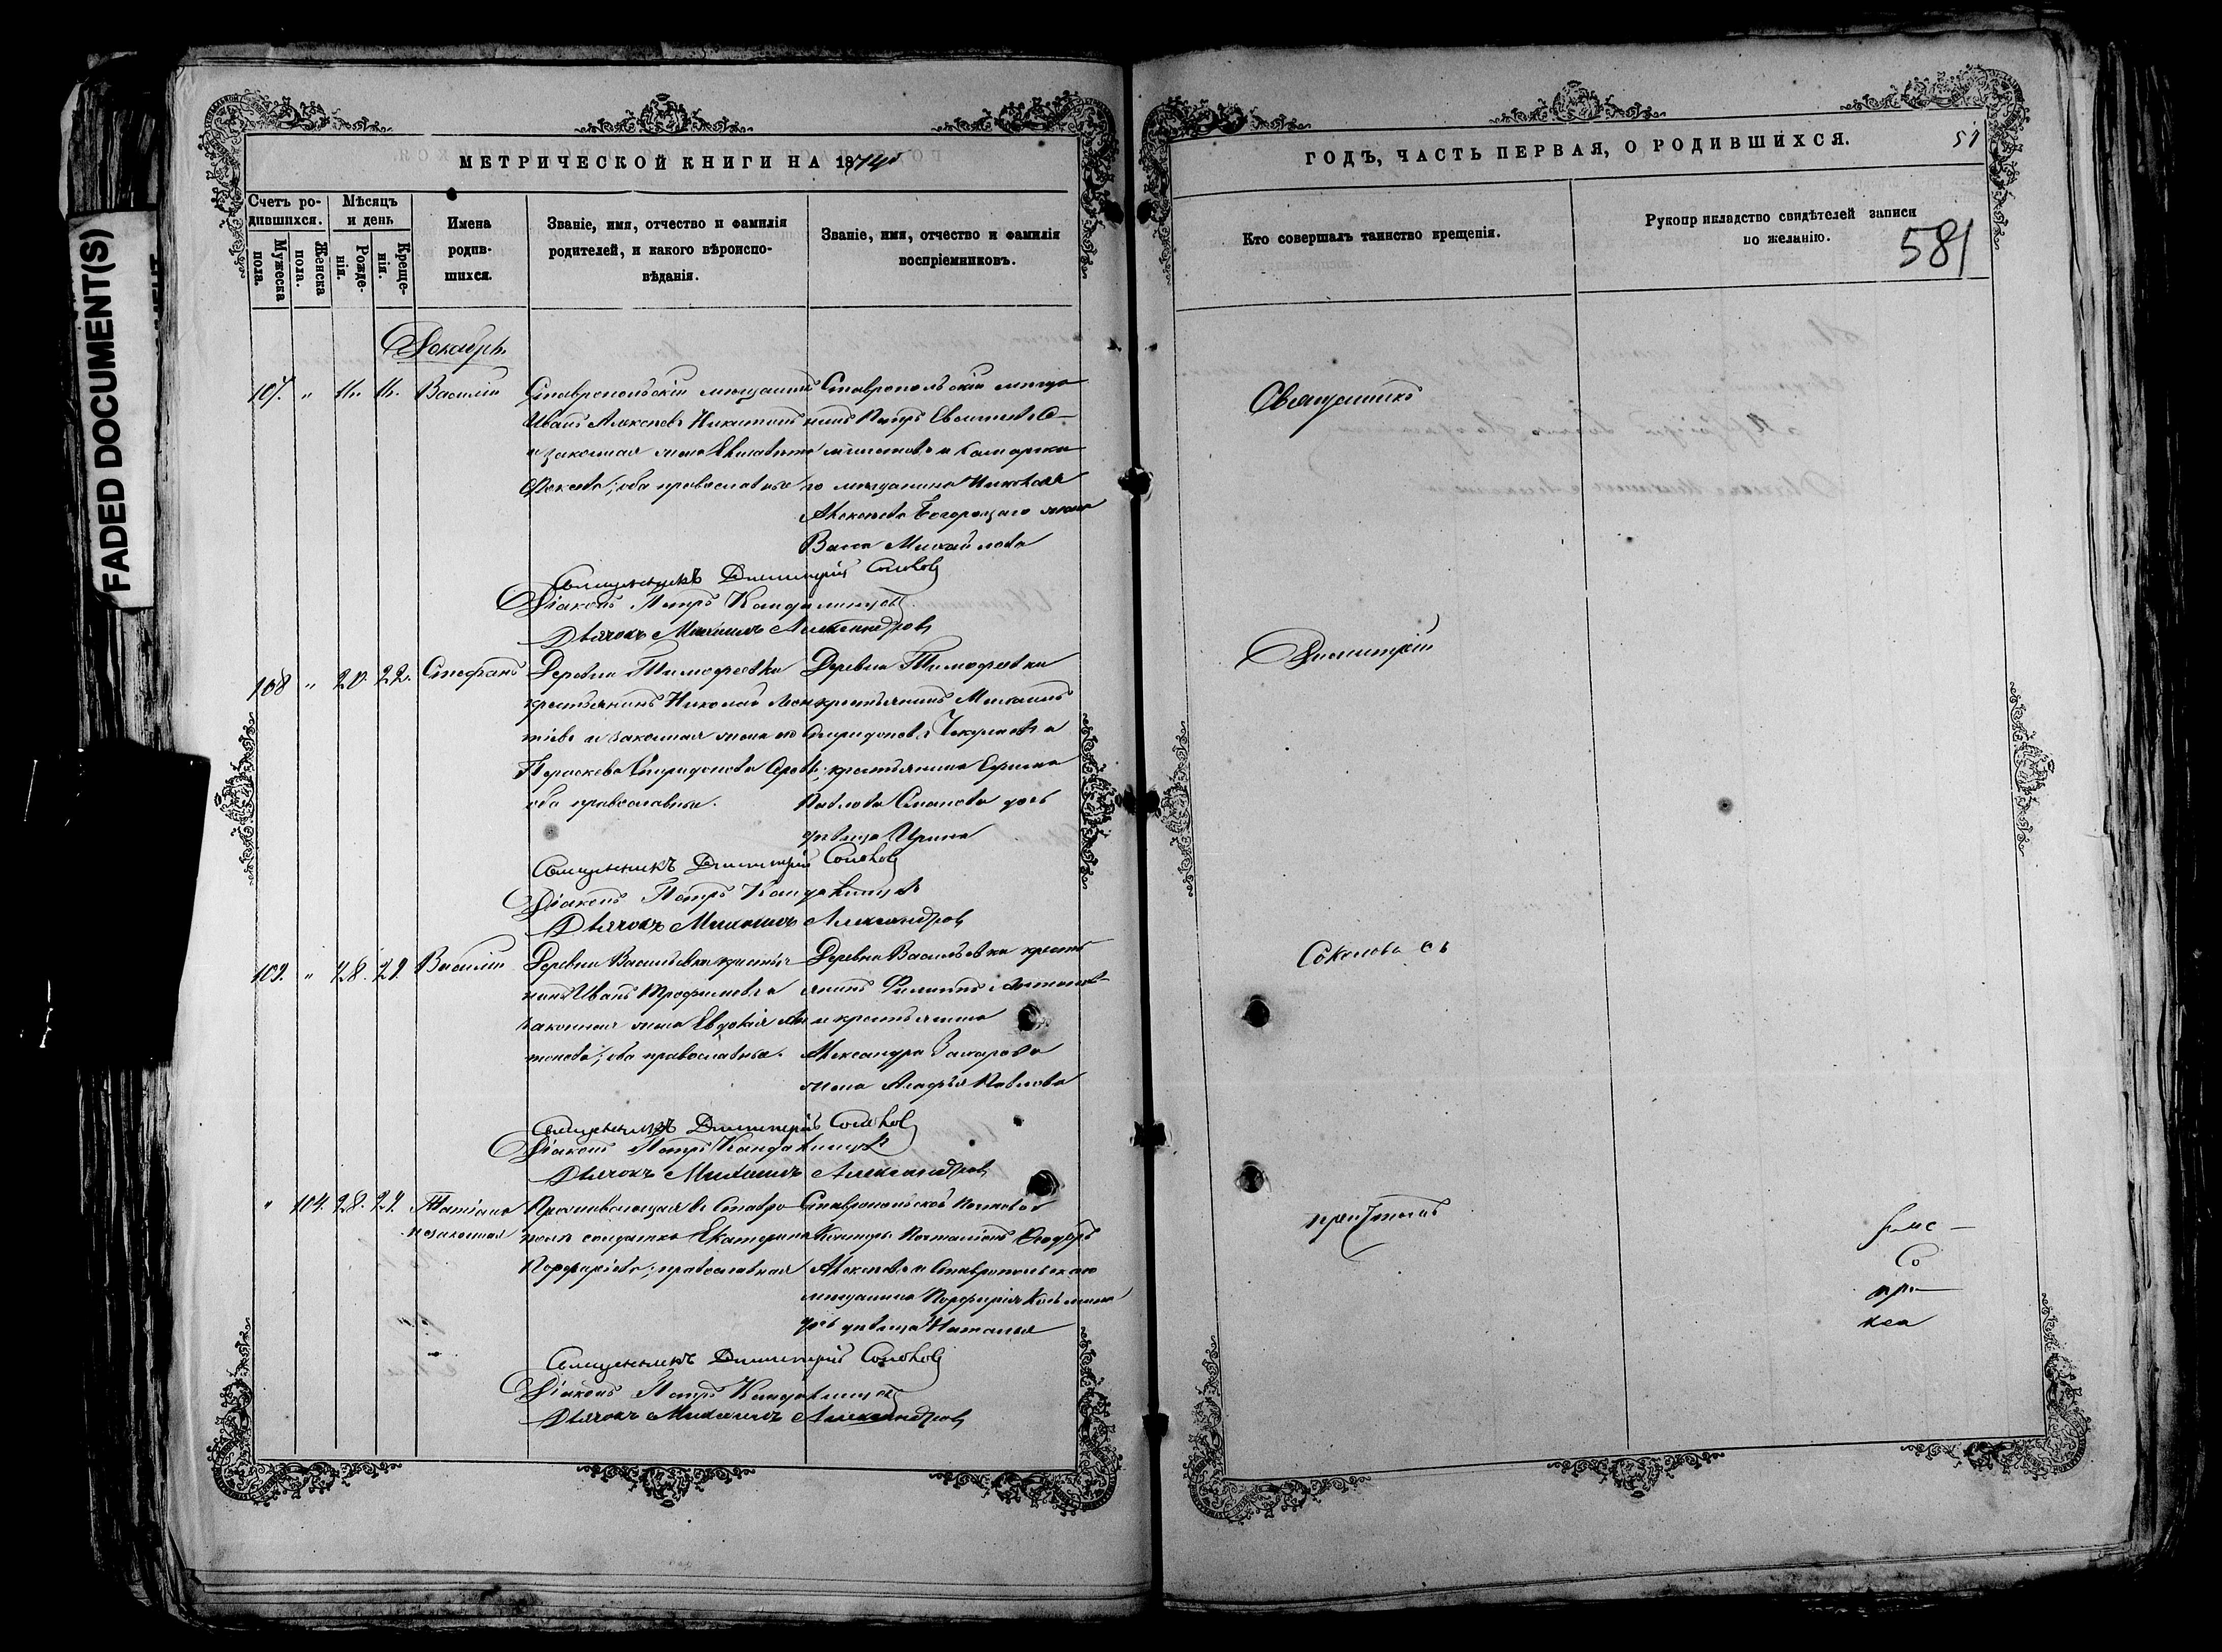 FADED DOCUMENT(S)
МЕТРИЧЕСКОЙ КНИГИ НА 1874
Счетъ ро-
дившихся.
Мужеска
пола.
Женска
пола.
Мѣсяцъ
и день
Рожде-
нія.
Креще-
нія.
Имена
родив-
шихся.
Званіе, имя, отчество и фамилія
родителей, и какого вѣроиспо-
вѣданія.
Званіе, имя, отчество и фамилія
воспріемниковъ.
Декабрь
107. " 16. 16. Василій
Ставропольскій мѣщанинъ
Иванъ Алексѣевъ Никитинъ
и законная жена Елисавета
оба православные
Ставропольскій мѣща-
нинъ Петръ
и Самарска-
го мѣщанина Николая
Алексѣева Богородцаго жена
Васса Михайлова
Священникъ Димитрій Соколовъ
Діаконъ Петръ
Дьячокъ Михаилъ Александровъ
108 " 20. 22. Стефанъ
Деревни Тимофеевки
крестьянинъ Николай Леон-
тіевъ и законная жена его
Параскева Спиридонова
оба православные.
Деревни Тимофеевки
крестьянинъ Михаилъ
Спиридоновъ и
крестьянина Ефима
Павлова дочь
дѣвица Ирина
Священникъ Димитрій Соколовъ
Діаконъ Петръ
Дьячокъ Михаилъ Александровъ
109. " 28. 29. Василій
Деревни Васильевки крестья-
нинъ Иванъ Трофимовъ и
законная жена Евдокія Ан-
тонова; оба православные.
Деревни Васильевки кресть-
янинъ Филиппъ Антоновъ
и крестьянина
Александра Захарова
жена Агафья Павлова
Священникъ Димитрій Соколовъ
Діаконъ Петръ
Дьячокъ Михаилъ Александровъ
" 104. 28. 29. Татіана
незаконная
Проживающая въ Ставро-
полѣ солдатка Екатерина
Порфиріева; православная
Ставропольской Почтовой
Конторы Почталіонъ Ѳедоръ
Алексѣевъ и Ставропольскаго
мѣщанина Порфирія Козьмина
дочь дѣвица Наталья
Священникъ Димитрій Соколовъ
Діаконъ Петръ
Дьячокъ Михаилъ Александровъ
ГОДЪ, ЧАСТЬ ПЕРВАЯ, О РОДИВШИХСЯ.
51
Кто совершалъ таинство крещенія.
Рукоприкладство свидѣтелей записи
по желанію.
581
Священникъ
Димитрій
Соколовъ съ
причтомъ